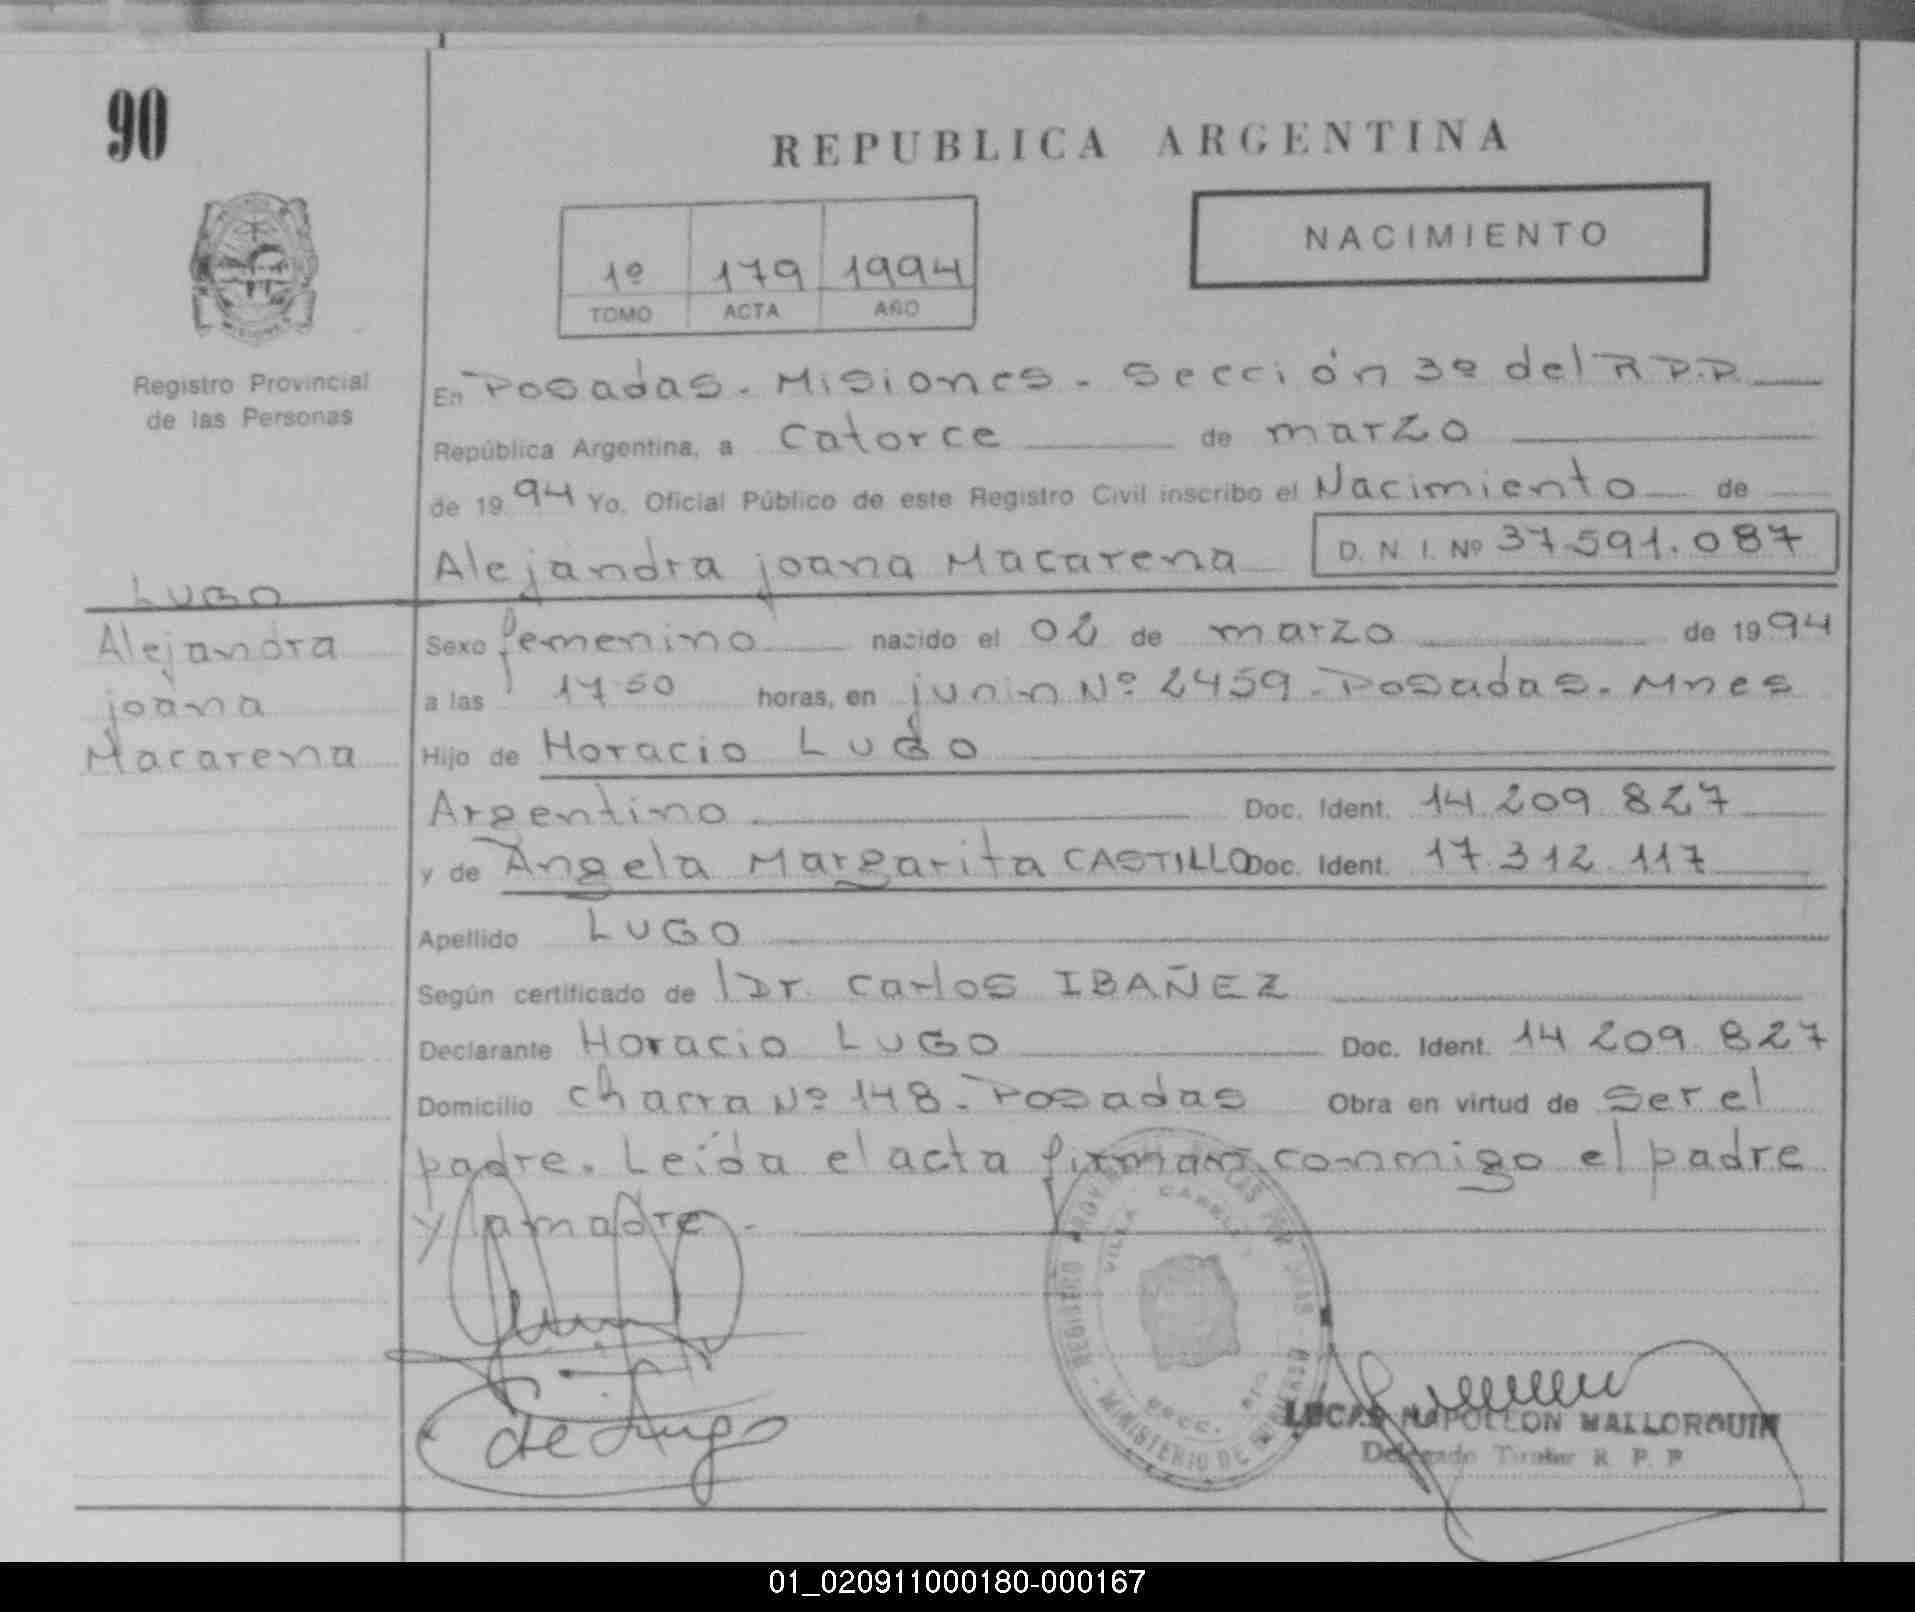 90
REPUBLICA ARGENTINA
NACIMIENTO
1º 179 1994
TOMO ACTA AÑO
Registro Provincial
de las Personas
En Posadas. Misiones. Sección 3º del R.P.P.
República Argentina, a Catorce de marzo
de 1994 Yo, Oficial Público de este Registro Civil inscribo el Nacimiento de
Alejandra joana Macarena D. N. I. Nº 37.591.087
LUGO
Alejandra
joana
Macarena
Sexo femenino nacido el 02 de marzo de 1994
a las 17 50 horas, en junin Nº 2459. Posadas. Mnes
Hijo de Horacio LUGO
Argentino Doc. Ident. 14.209.827
y de Angela Margarita CASTILLO Doc. Ident. 17.312.117
Apellido LUGO
Según certificado de Dr. Carlos IBAÑEZ
Declarante Horacio LUGO Doc. Ident. 14 209.827
Domicilio chacra Nº 148. Posadas Obra en virtud de ser el
padre. Leída el acta firman conmigo el padre
y la madre.
de Lugo
REGISTRO PROV. DE LAS PERSONAS
VILLA CABELLO
MINISTERIO DE GOBIERNO
LUCAS NAPOLEON MALLORQUIN
Delegado Titular R. P. P.
01_020911000180-000167